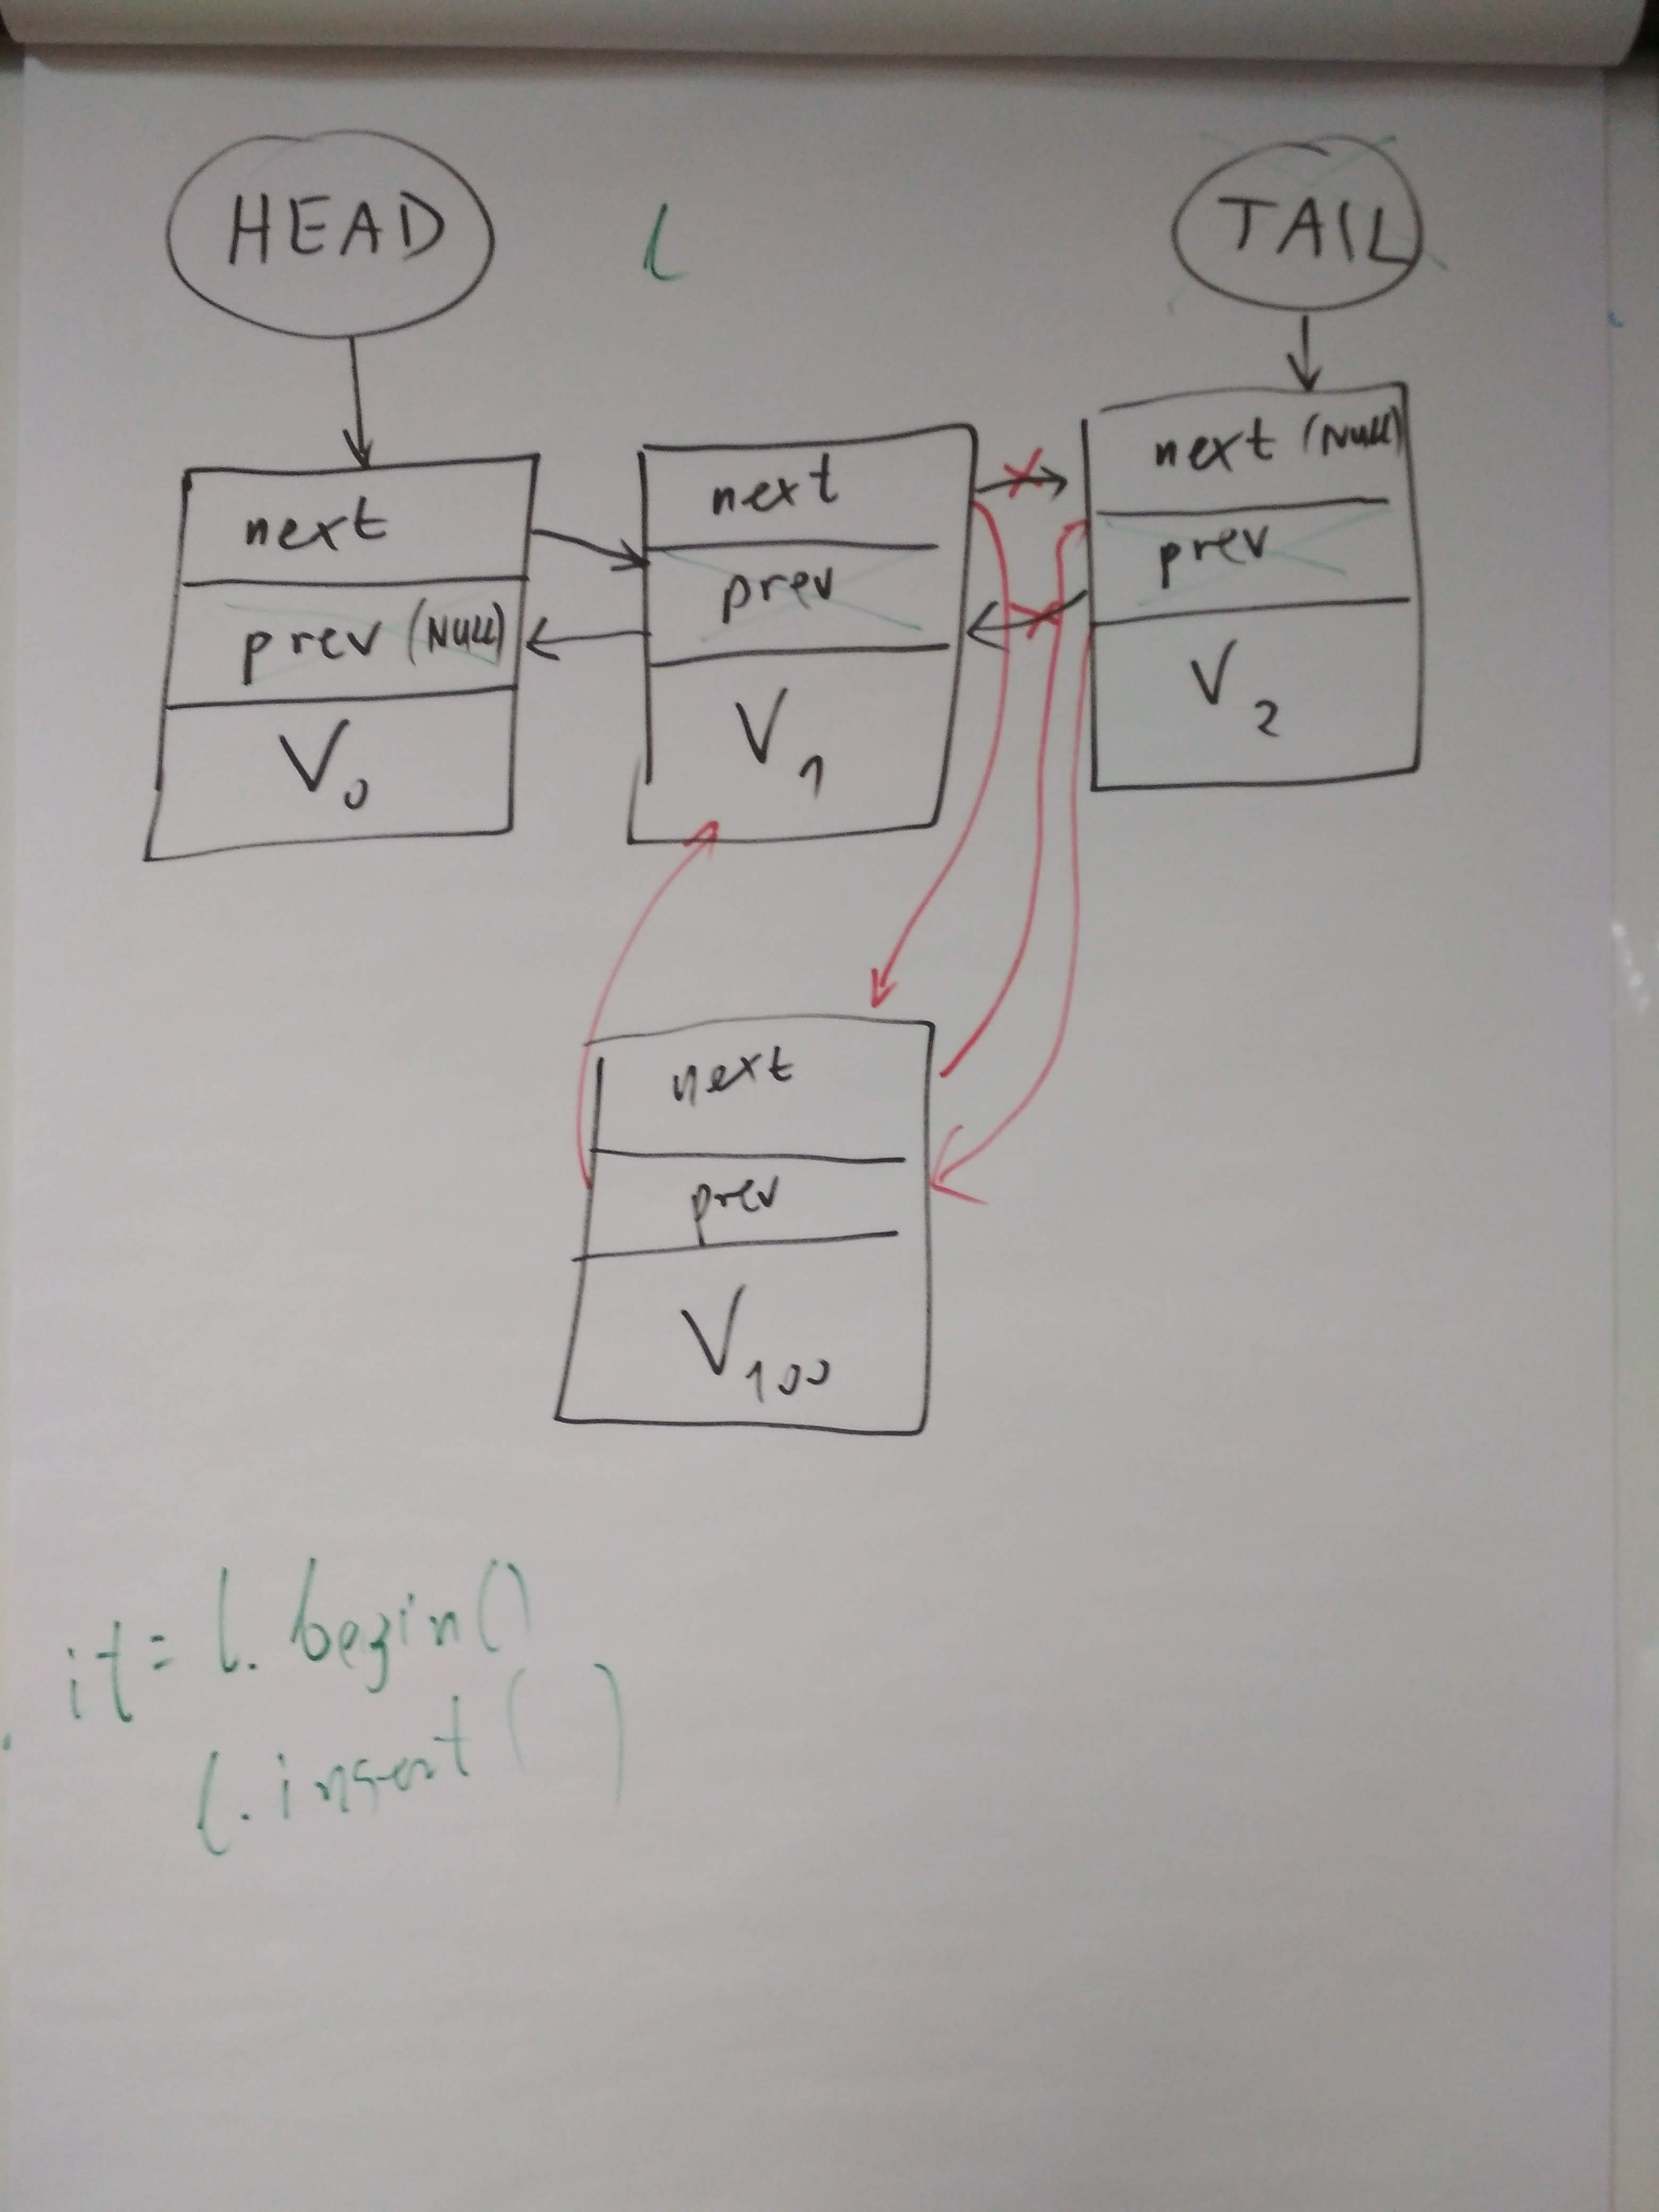 HEAD
l
TAIL
next
prev (NULL)
V0
next
prev
V1
next (NULL)
prev
V2
next
prev
V100
it = l.begin()
l.insert( )